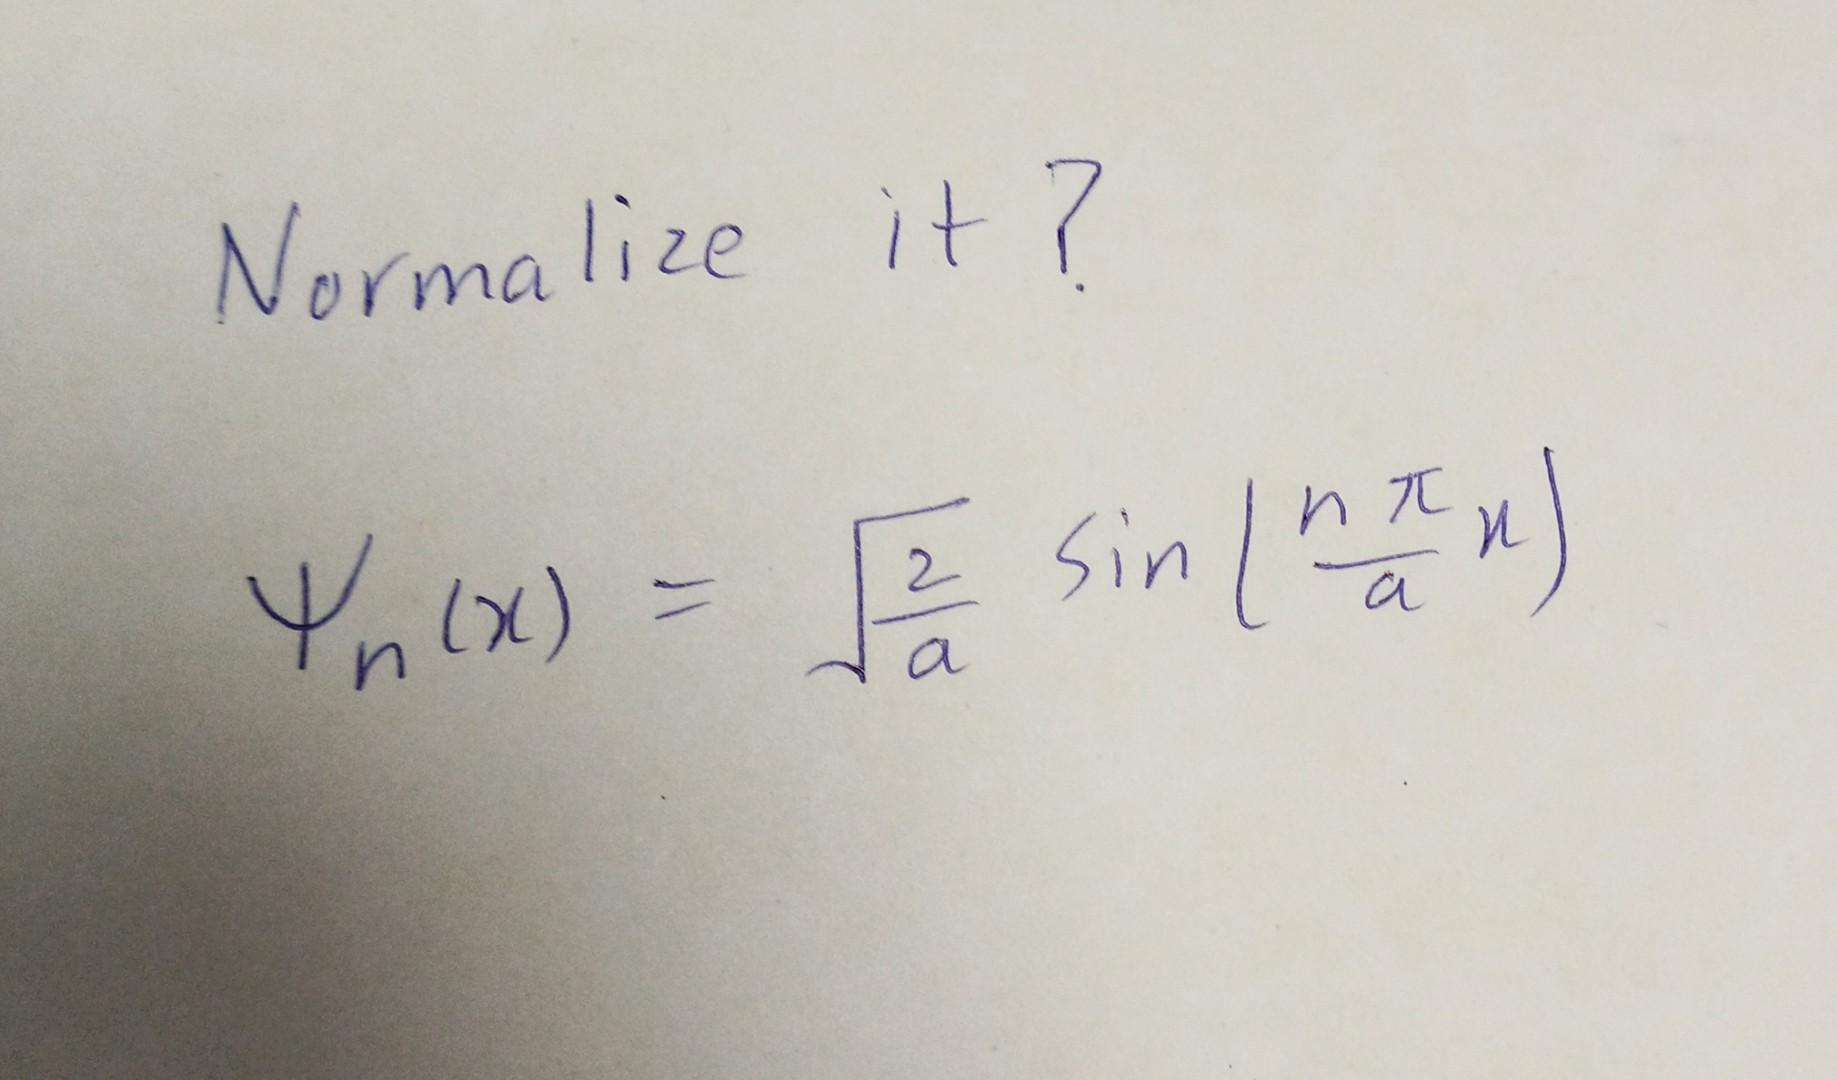 Normalize it?
Ψₙ(x) = √(2/a) sin(nπ/a x)